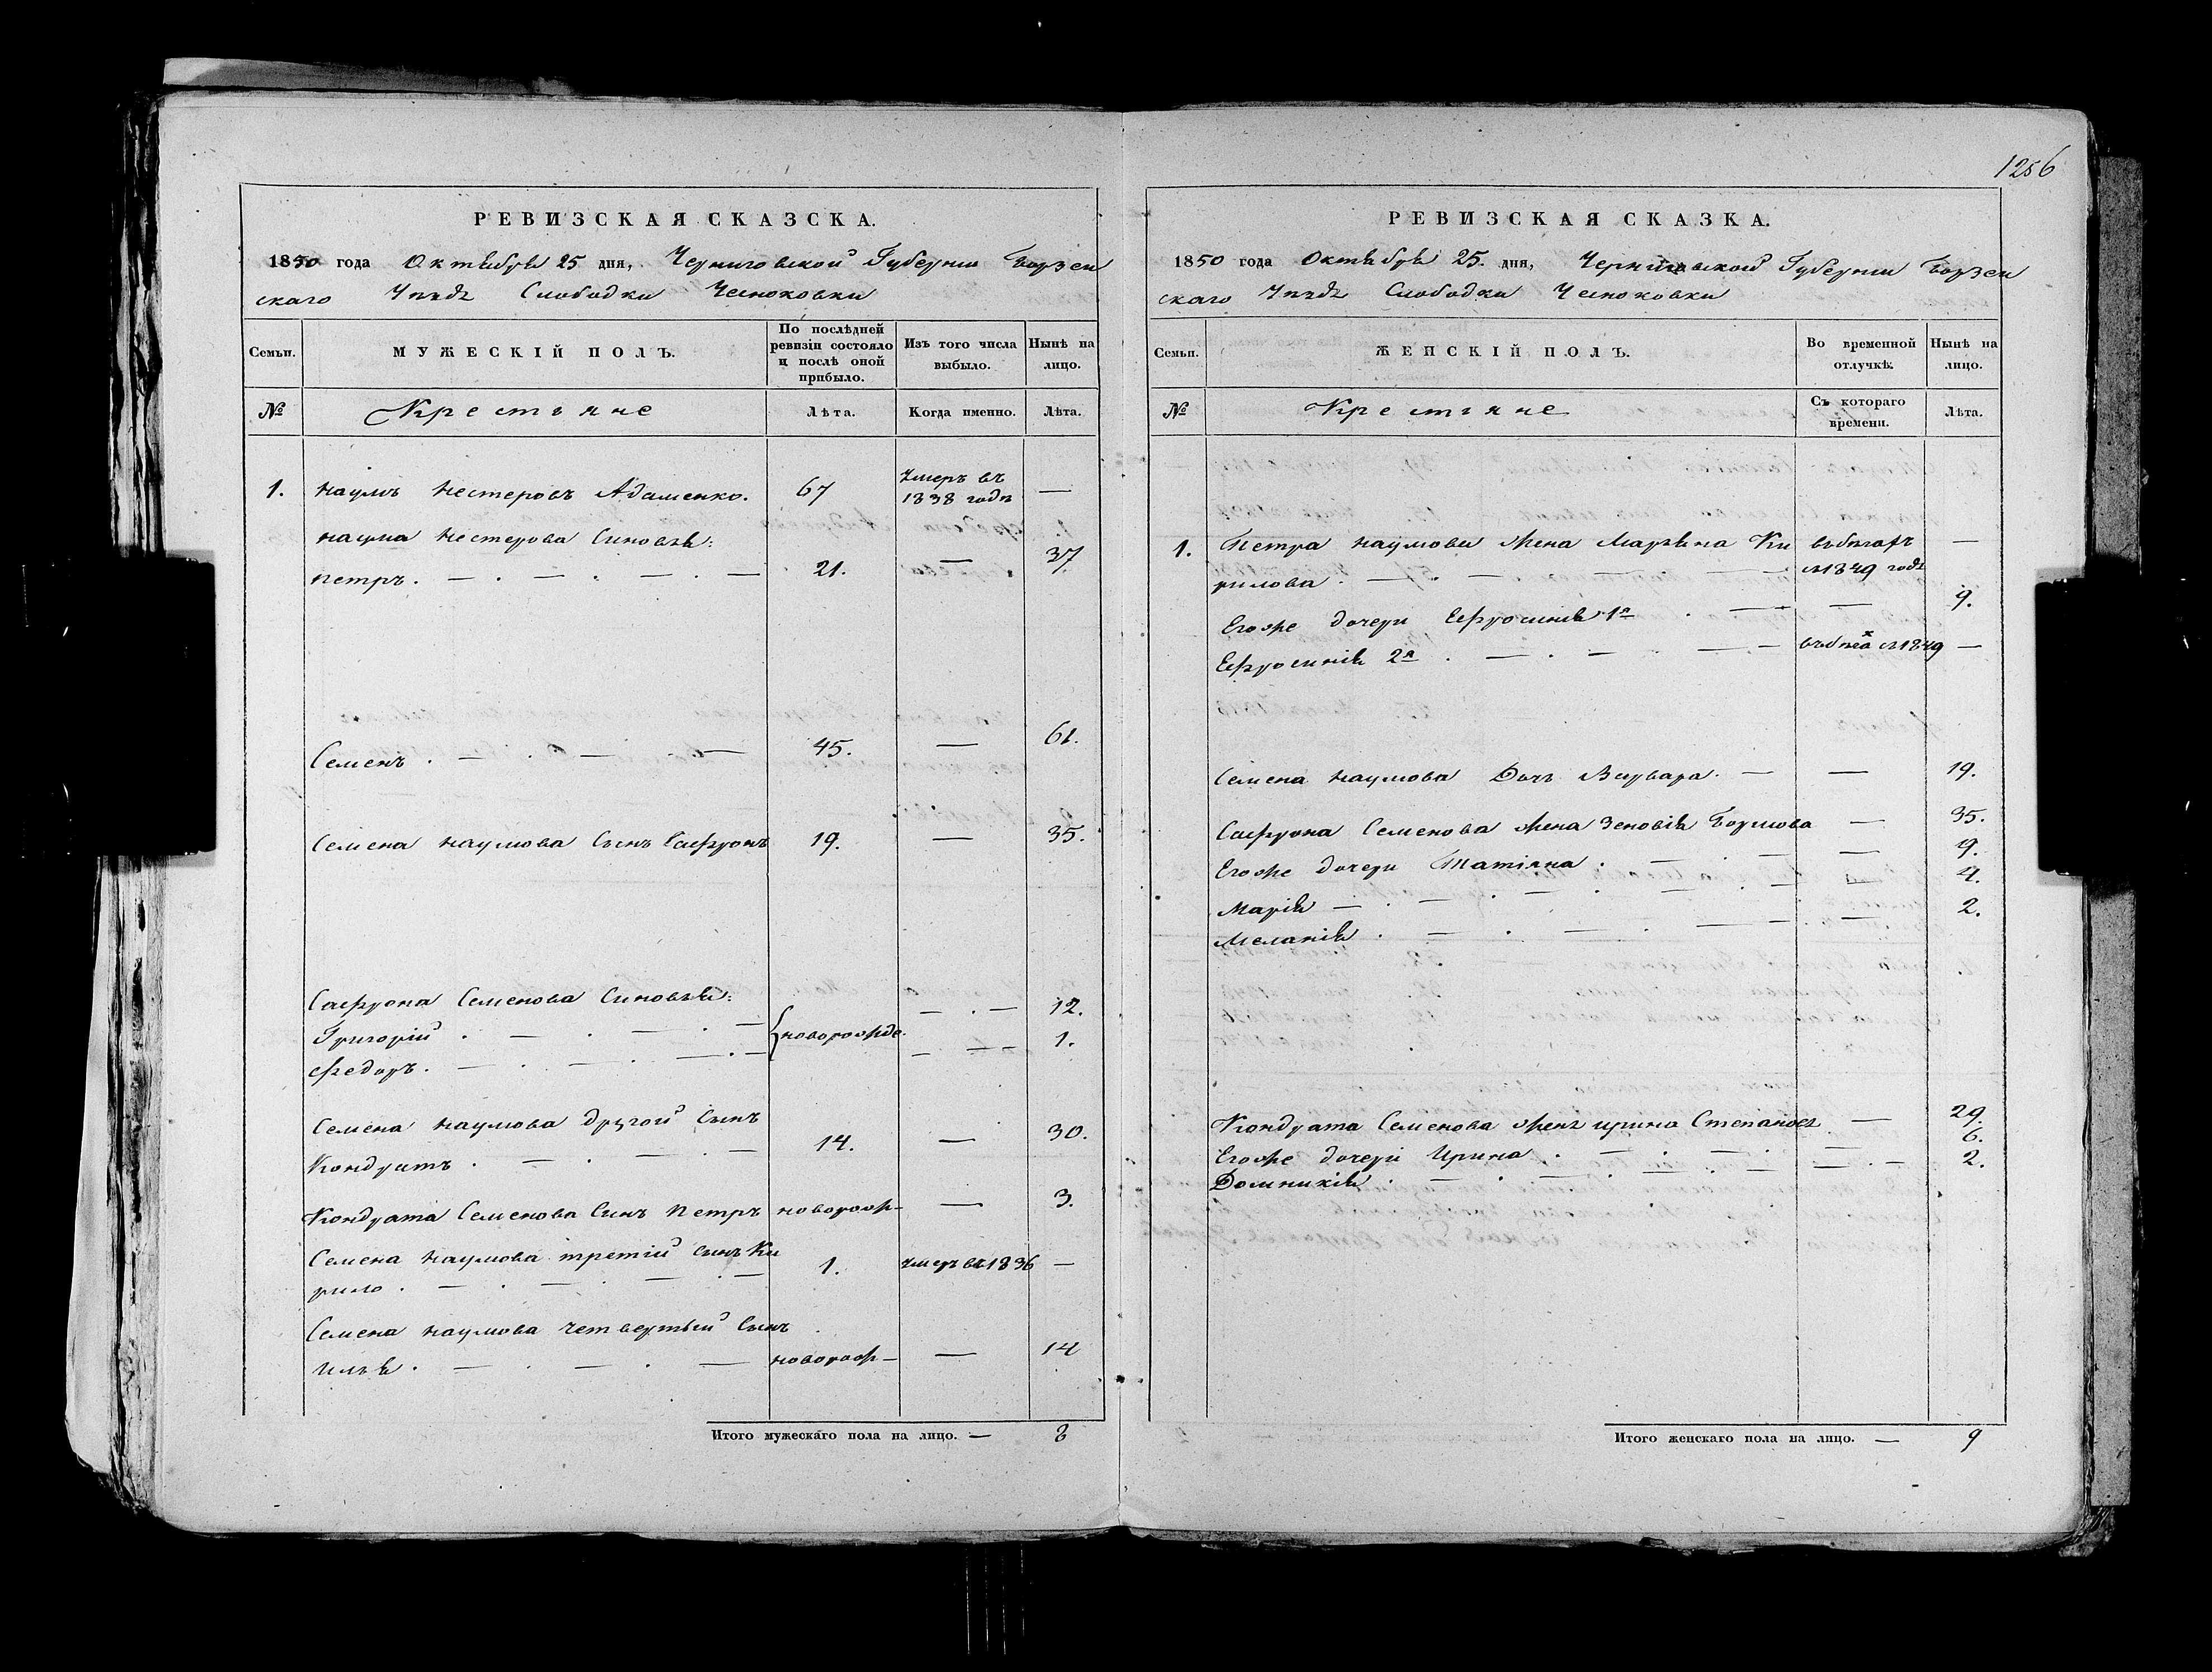 1256
РЕВИЗСКАЯ СКАЗСКА.
1850 года Октября 25 дня, Черниговской Губернии Борзен
скаго Уезда Слободки Чесноковки
Семьи. МУЖЕСКІЙ ПОЛЪ. По послѣдней ревизіи состояло и послѣ оной прибыло. Изъ того числа выбыло. Нынѣ на лицо.
№ Крестьяне Лѣта. Когда именно. Лѣта.
1. Наумъ Нестеровъ Адаменко. 67 Умеръ въ 1838 годѣ —
Наума Нестерова Синовья:
Петръ. 21. — 37
Семенъ. 45. — 61.
Семена Наумова Сынъ Сафронъ 19. — 35.
Сафрона Семенова Синовья:
Григорій { новорожде. — 12.
Федоръ. — 1.
Семена Наумова другой Сынъ
Кондратъ. 14. — 30.
Кондрата Семенова Синъ Петръ новорож — 3.
Семена Наумова третій сынъ Ки
рило. 1. Умеръ въ 1836 —
Семена Наумова четвертый Сынъ
Илья. новорож — 14
Итого мужескаго пола на лицо. — 8
РЕВИЗСКАЯ СКАЗКА.
1850 года Октября 25. дня, Черниговской Губернии Борзен
скаго Уезда Слободки Чесноковки
Семьи. ЖЕНСКІЙ ПОЛЪ. Во временной отлучкѣ. Нынѣ на лицо.
№ Крестьяне Съ котораго времени. Лѣта.
1. Петра Наумова Жена Марьяна Ки въ бѣгахъ —
рилова. съ 1849 года
Егоже дочери Ефросинія 1я — 9.
Ефросинія 2я въ бѣгах съ 1849 —
Семена Наумова Дочь Варвара. — 19.
Сафрона Семенова жена Зеновія Боримова — 35.
Егоже дочери Татіяна. — 9.
Марія — 4.
Меланія. — 2.
Кондрата Семенова жена Ирина Степанова — 29.
Егоже дочери Ирина. — 6.
Домникія. — 2.
Итого женскаго пола на лицо. — 9